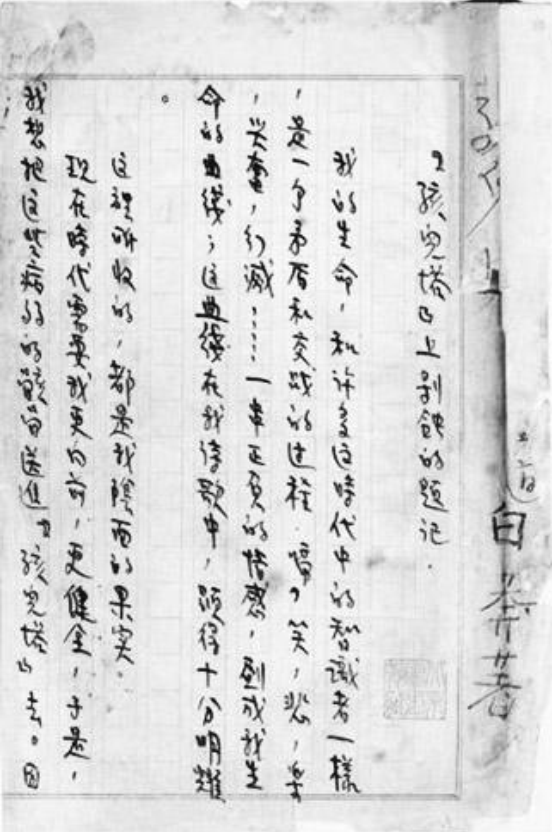 白莽著
『孩兒塔』上剝蝕的題记.
我的生命,和许多这時代中的智識者一樣
,是一个矛盾和交战的过程.啼,笑,悲,樂
,兴奮,幻滅……一串正负的情感,划成我生
命的曲綫;这曲綫在我诗歌中,顕得十分明耀
。
这裡所收的,都是我陰面的果实.
现在時代需要我更向前,更健全,于是,
我想把这些病弱的骸骨送進『孩兒塔』去。因